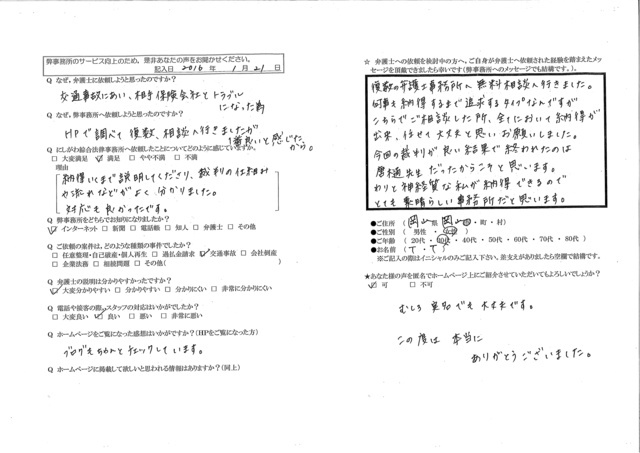 弊事務所のサービス向上のため、是非あなたの声をお聞かせください。
記入日 2016 年 1 月 21 日
Q なぜ、弁護士に依頼しようと思ったのですか？
交通事故にあい、相手保険会社とトラブル
になった為
Q なぜ、弊事務所へ依頼しようと思ったのですか？
HPで調べて複数、相談へ行きましたが
1番良いと感じたから。
Q にしがわ総合法律事務所へ依頼したことについてどのように感じていますか。
□ 大変満足 ☑ 満足 □ やや不満 □ 不満
理由
納得いくまで説明してくださり、裁判の仕組み
や流れなどがよく分かりました。
対応も良かったです。
Q 弊事務所をどちらでお知りになりましたか？
☑ インターネット □ 新聞 □ 電話帳 □ 知人 □ 弁護士 □ その他
Q ご依頼の案件は、どのような種類の事件でしたか？
□ 任意整理・自己破産・個人再生 □ 過払金請求 ☑ 交通事故 □ 会社倒産
□ 企業法務 □ 相続問題 □ その他（ ）
Q 弁護士の説明は分かりやすかったですか？
☑ 大変分かりやすい □ 分かりやすい □ 分かりにくい □ 非常に分かりにくい
Q 電話や接客の際、スタッフの対応はいかがでしたか？
□ 大変良い ☑ 良い □ 悪い □ 非常に悪い
Q ホームページをご覧になった感想はいかがですか？（HPをご覧になった方）
ブログもちゃんとチェックしています。
Q ホームページに掲載して欲しいと思われる情報はありますか？（同上）
☆ 弁護士への依頼を検討中の方へ、ご自身が弁護士へ依頼された経験を踏まえたメッ
セージを頂戴できましたら幸いです（弊事務所へのメッセージでも結構です。）。
複数の弁護士事務所へ無料相談へ行きました。
何事も納得するまで追求するタイプなんですが
こちらでご相談した所、全てにおいて納得が
出来、任せて大丈夫と思いお願いしました。
今回の裁判が良い結果で終われたのは
先生だったからこそと思います。
わりと神経質な私が納得できるので
とても素晴らしい事務所だと思います。
●ご住所 （ 岡山 県 岡山 市・町・村）
●ご性別 （ 男性 ・ 女性 ）
●ご年齢 （ 20代 ・ 30代 ・ 40代 ・ 50代 ・ 60代 ・ 70代 ・ 80代 ）
●お名前 （ T . T ）
※ご記入の際はイニシャルのみご記入下さい。差支えがありましたら空欄で結構です。
★あなた様の声を匿名でホームページ上にご紹介させていただいてもよろしいでしょうか？
☑ 可 □ 不可
むしろ実名でも大丈夫です。
この度は 本当に
ありがとうございました。